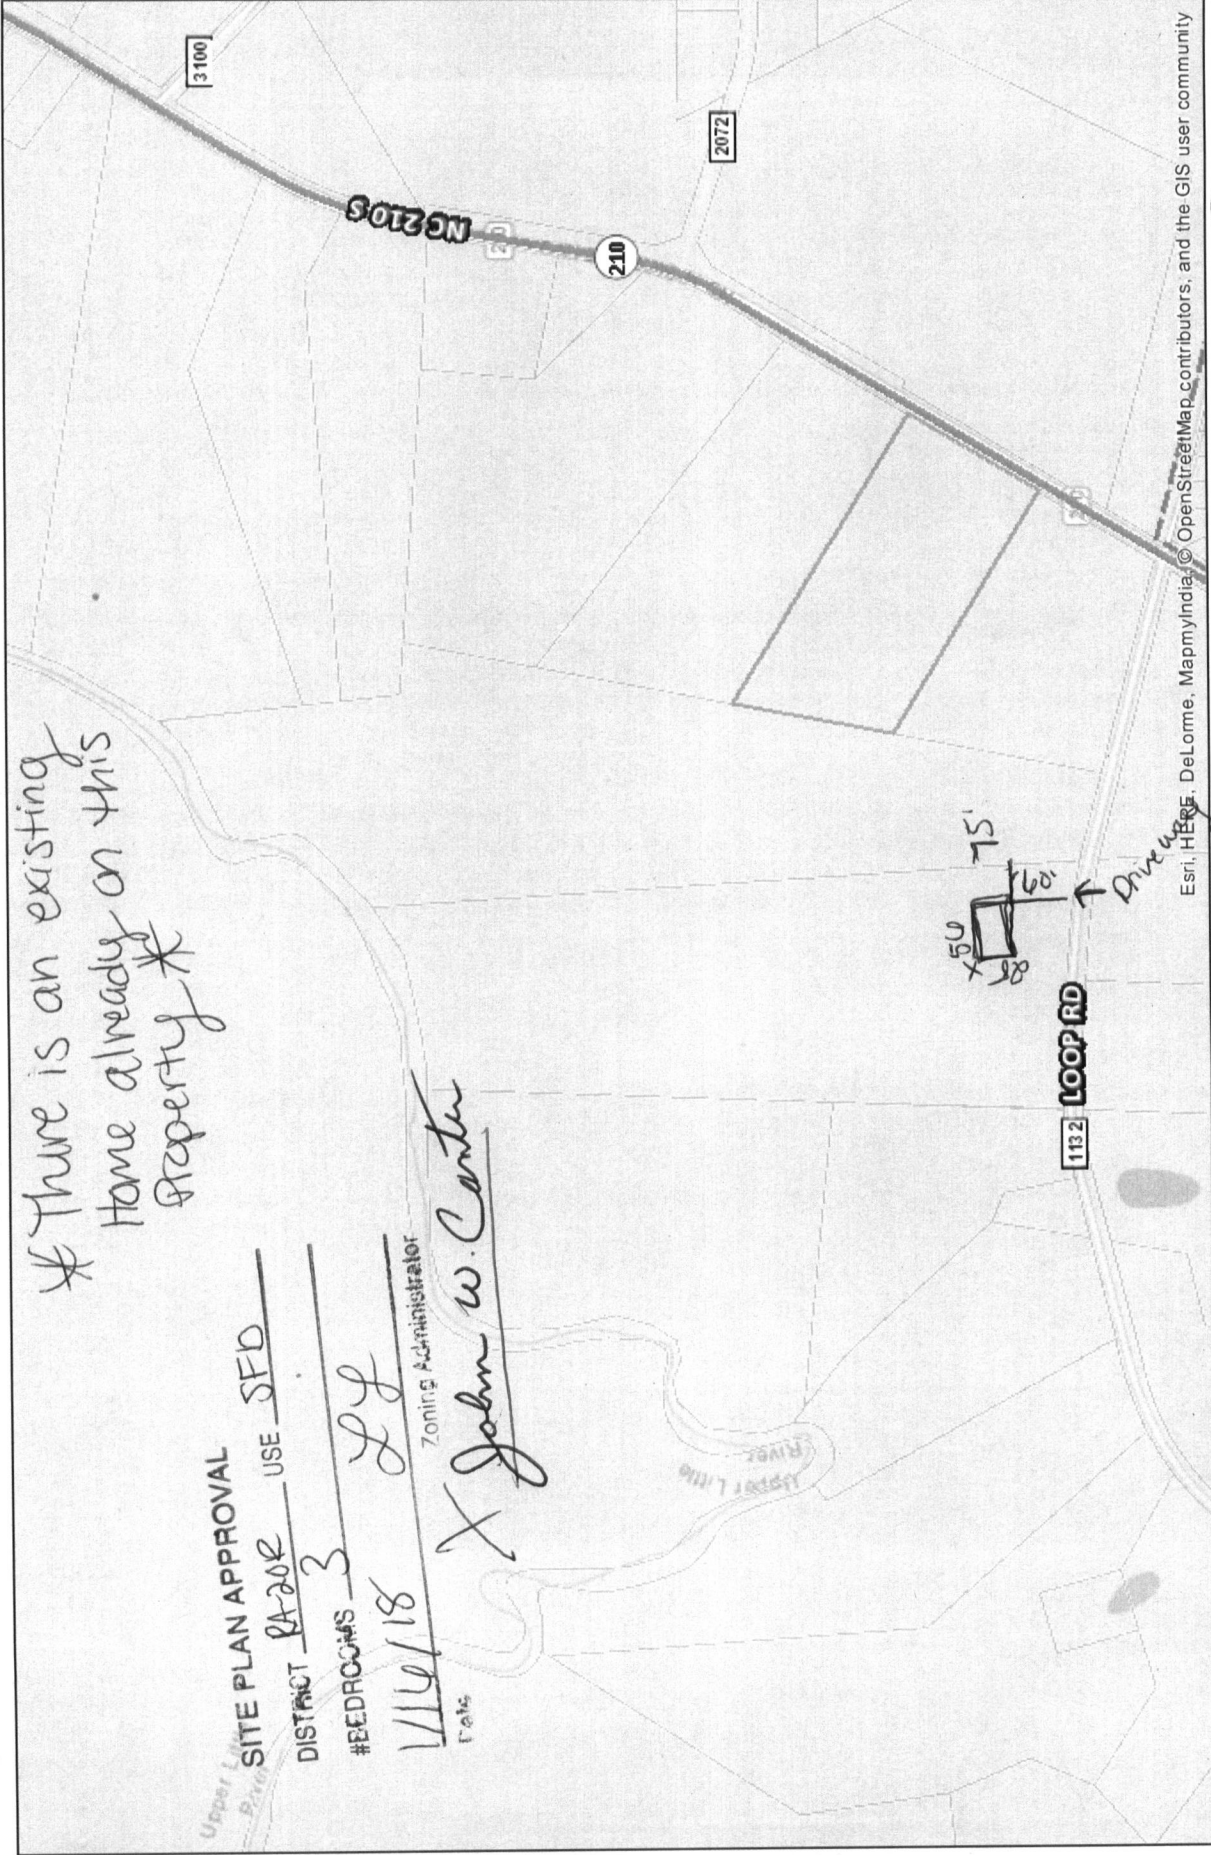 * There is an existing
Home already on this
Property *
SITE PLAN APPROVAL
DISTRICT RA20R USE SFD
#BEDROOMS 3
Date
Zoning Administrator
X John W. Canter
Upper Little
River
3100
NC 210 S
210
2072
210
x 56
28
75'
40'
Driveway
1132 LOOP RD
Esri, HERE, DeLorme, MapmyIndia, © OpenStreetMap contributors, and the GIS user community